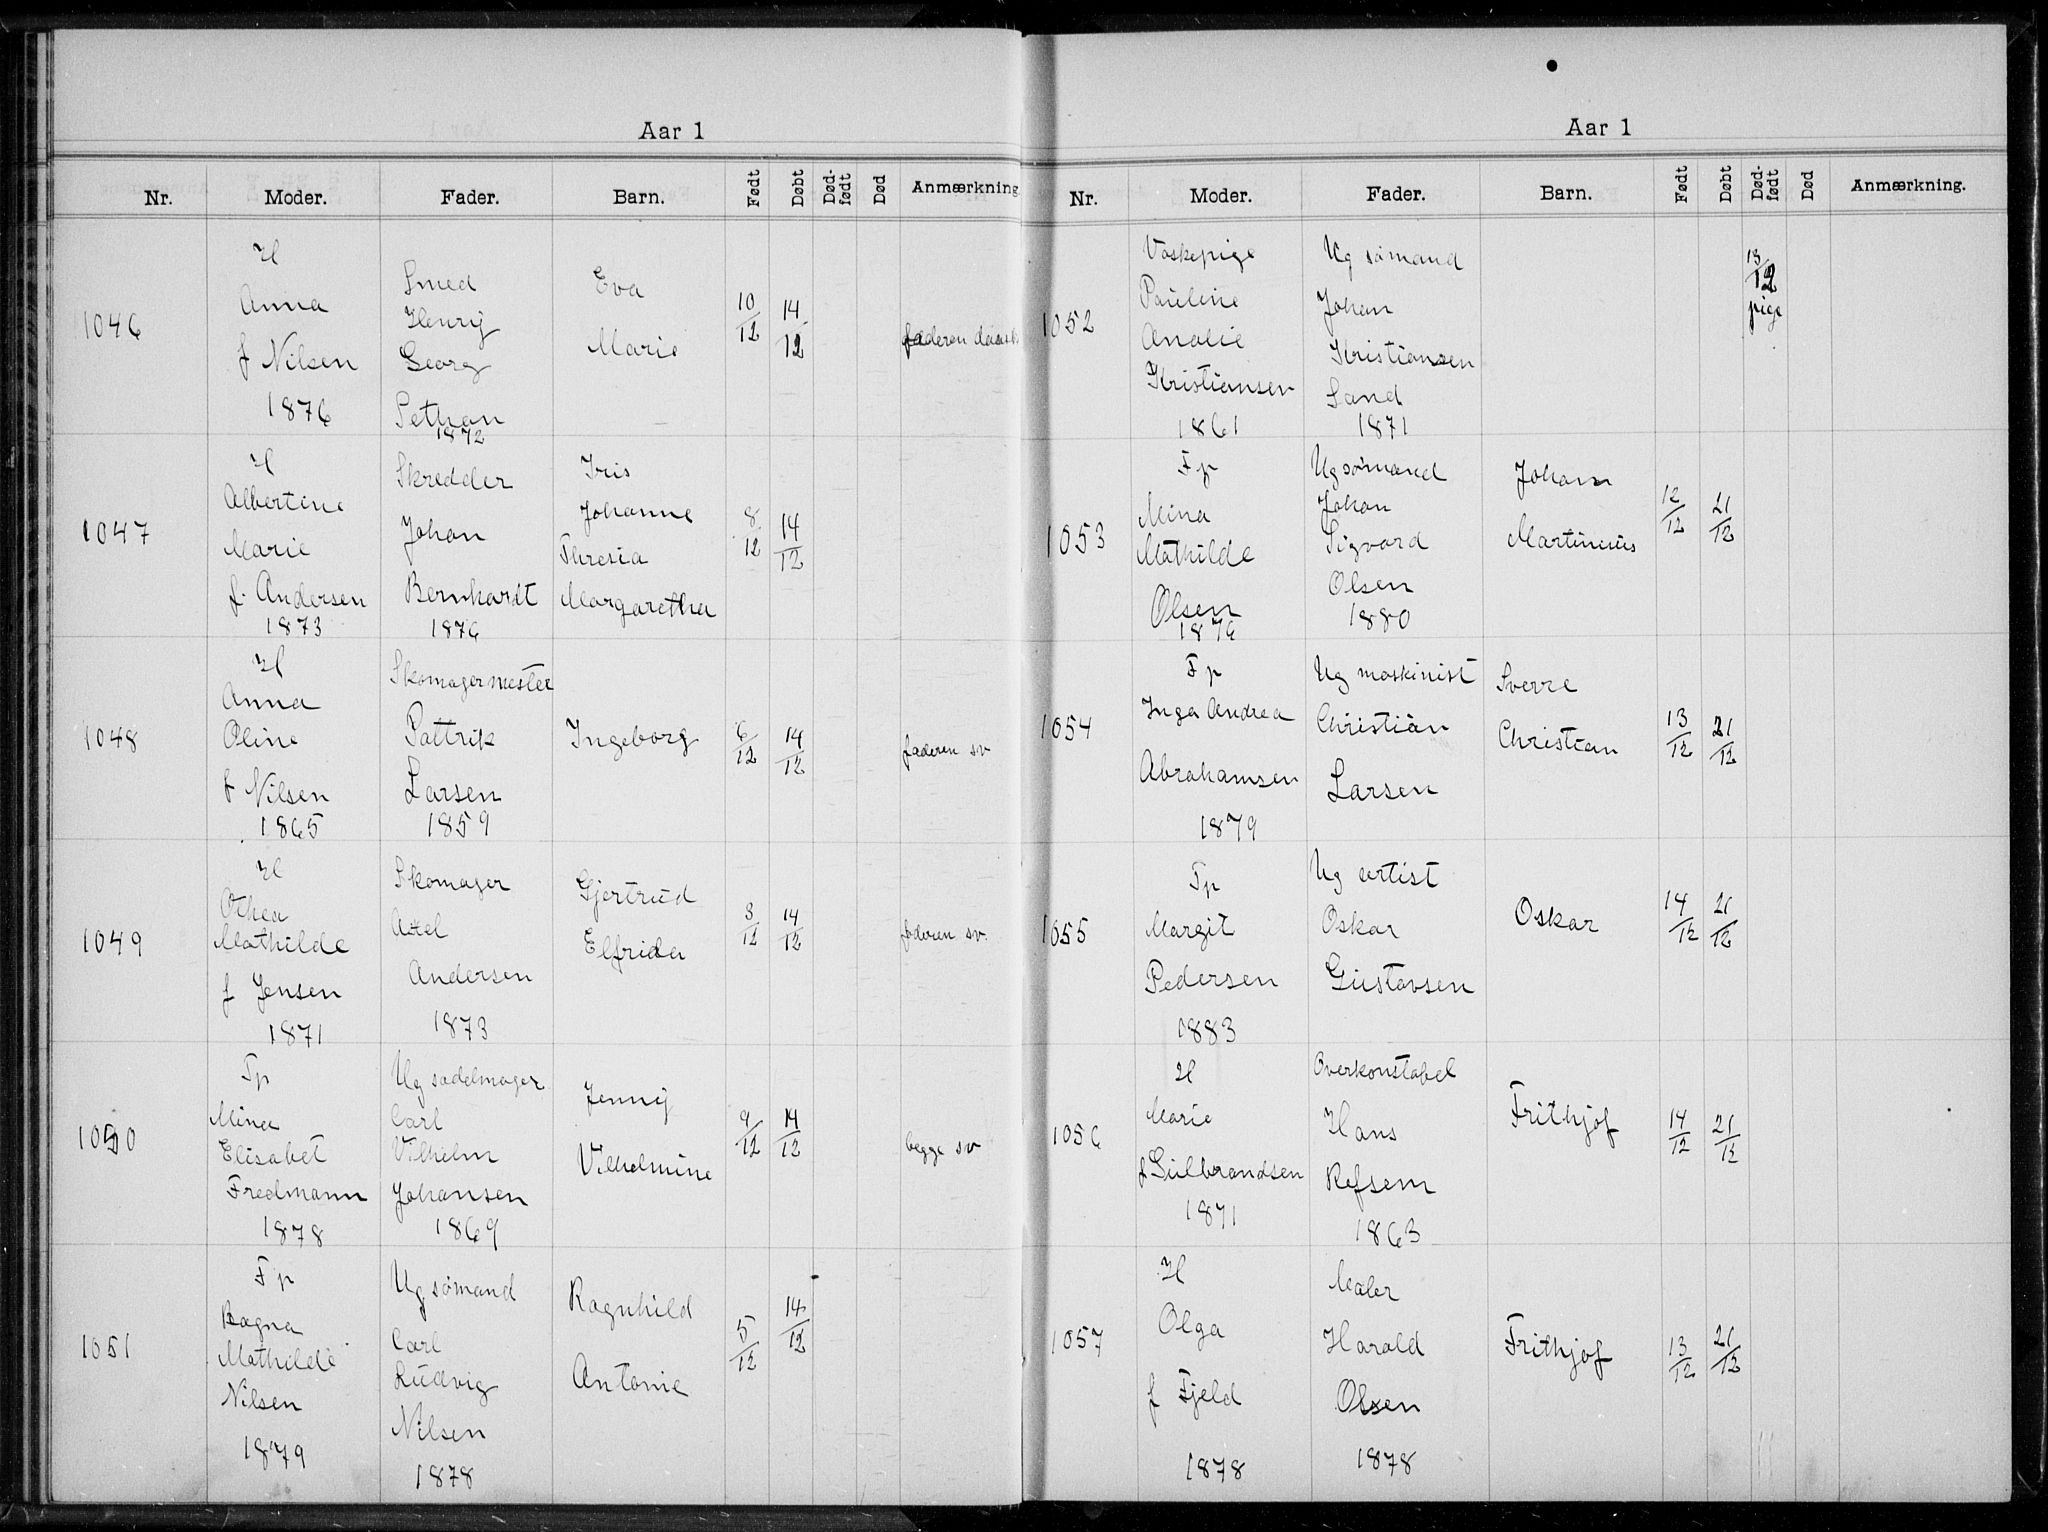 Aar 1
Nr. Moder. Fader. Barn. Født Døbt Død-født Død Anmærkning.
1046
H
Anna
f Nilsen
1876
Smed
Henrij
Georg
Pethon
1872
Eva
Marie
10/12
14/12
faderen dansk
1047
H
Albertine
Marie
f. Andersen
1873
Skredder
Johan
Bernhardt
1876
Iris
Johanne
Thresia
Margaretha
8/12
14/12
1048
H
Anna
Oline
f Nilsen
1865
Skomagermester
Pattrik
Larsen
1859
Ingeborg
6/12
14/12
faderen sv
1049
H
Othea
Mathilde
f Jensen
1871
Skomager
Axel
Andersen
1873
Gjertrud
Elfrida
3/12
14/12
faderen sv.
1050
Tp
Mina
Elisabet
Fredmann
1878
Ug sadelmager
Carl
Vilhelm
Johansen
1869
Jennij
Vilhelmine
9/12
14/12
begge sv
1051
Fp
Ragna
Mathilde
Nilsen
1879
Ug sømand
Carl
Ludvig
Nilsen
1878
Ragnhild
Antonie
5/12
14/12
Aar 1
Nr. Moder. Fader. Barn. Født Døbt Død-født Død Anmærkning.
1052
Vaskepige
Pauline
Analie
Kristiansen
1861
Ug sømand
Johan
Kristiansen
Sand
1871
13/12
pige
1053
Fp
Mina
Mathilde
Olsen
1876
Ug sømand
Johan
Sigvard
Olsen
1880
Johan
Martinius
12/12
21/12
1054
Fp
Inga Andrea
Abrahamsen
1879
Ug maskinist
Christian
Larsen
Sverre
Christian
13/12
21/12
1055
Tp
Margit
Pedersen
1883
Ug artist
Oskar
Gustavsen
Oskar
14/12
21/12
1056
H
Marie
f Gulbrandsen
1871
Overkonstabel
Hans
Refsem
1863
Frithjof
14/12
21/12
1057
H
Olga
f Fjeld
1878
Maler
Harald
Olsen
1878
Frithjof
13/12
21/12